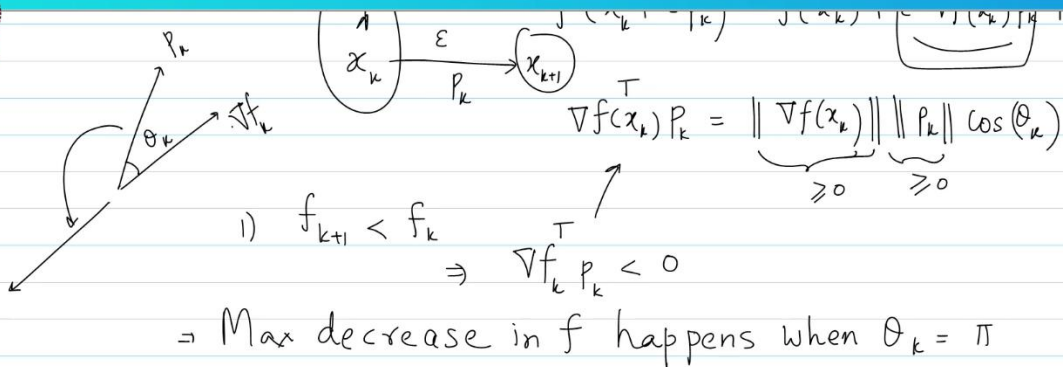 P_k
θ_k
∇f_k
x_k
ε
P_k
x_{k+1}
∇f(x_k)^T P_k = ‖∇f(x_k)‖ ‖P_k‖ cos(θ_k)
≥0 ≥0
1) f_{k+1} < f_k
⇒ ∇f_k^T P_k < 0
= Max decrease in f happens when θ_k = π